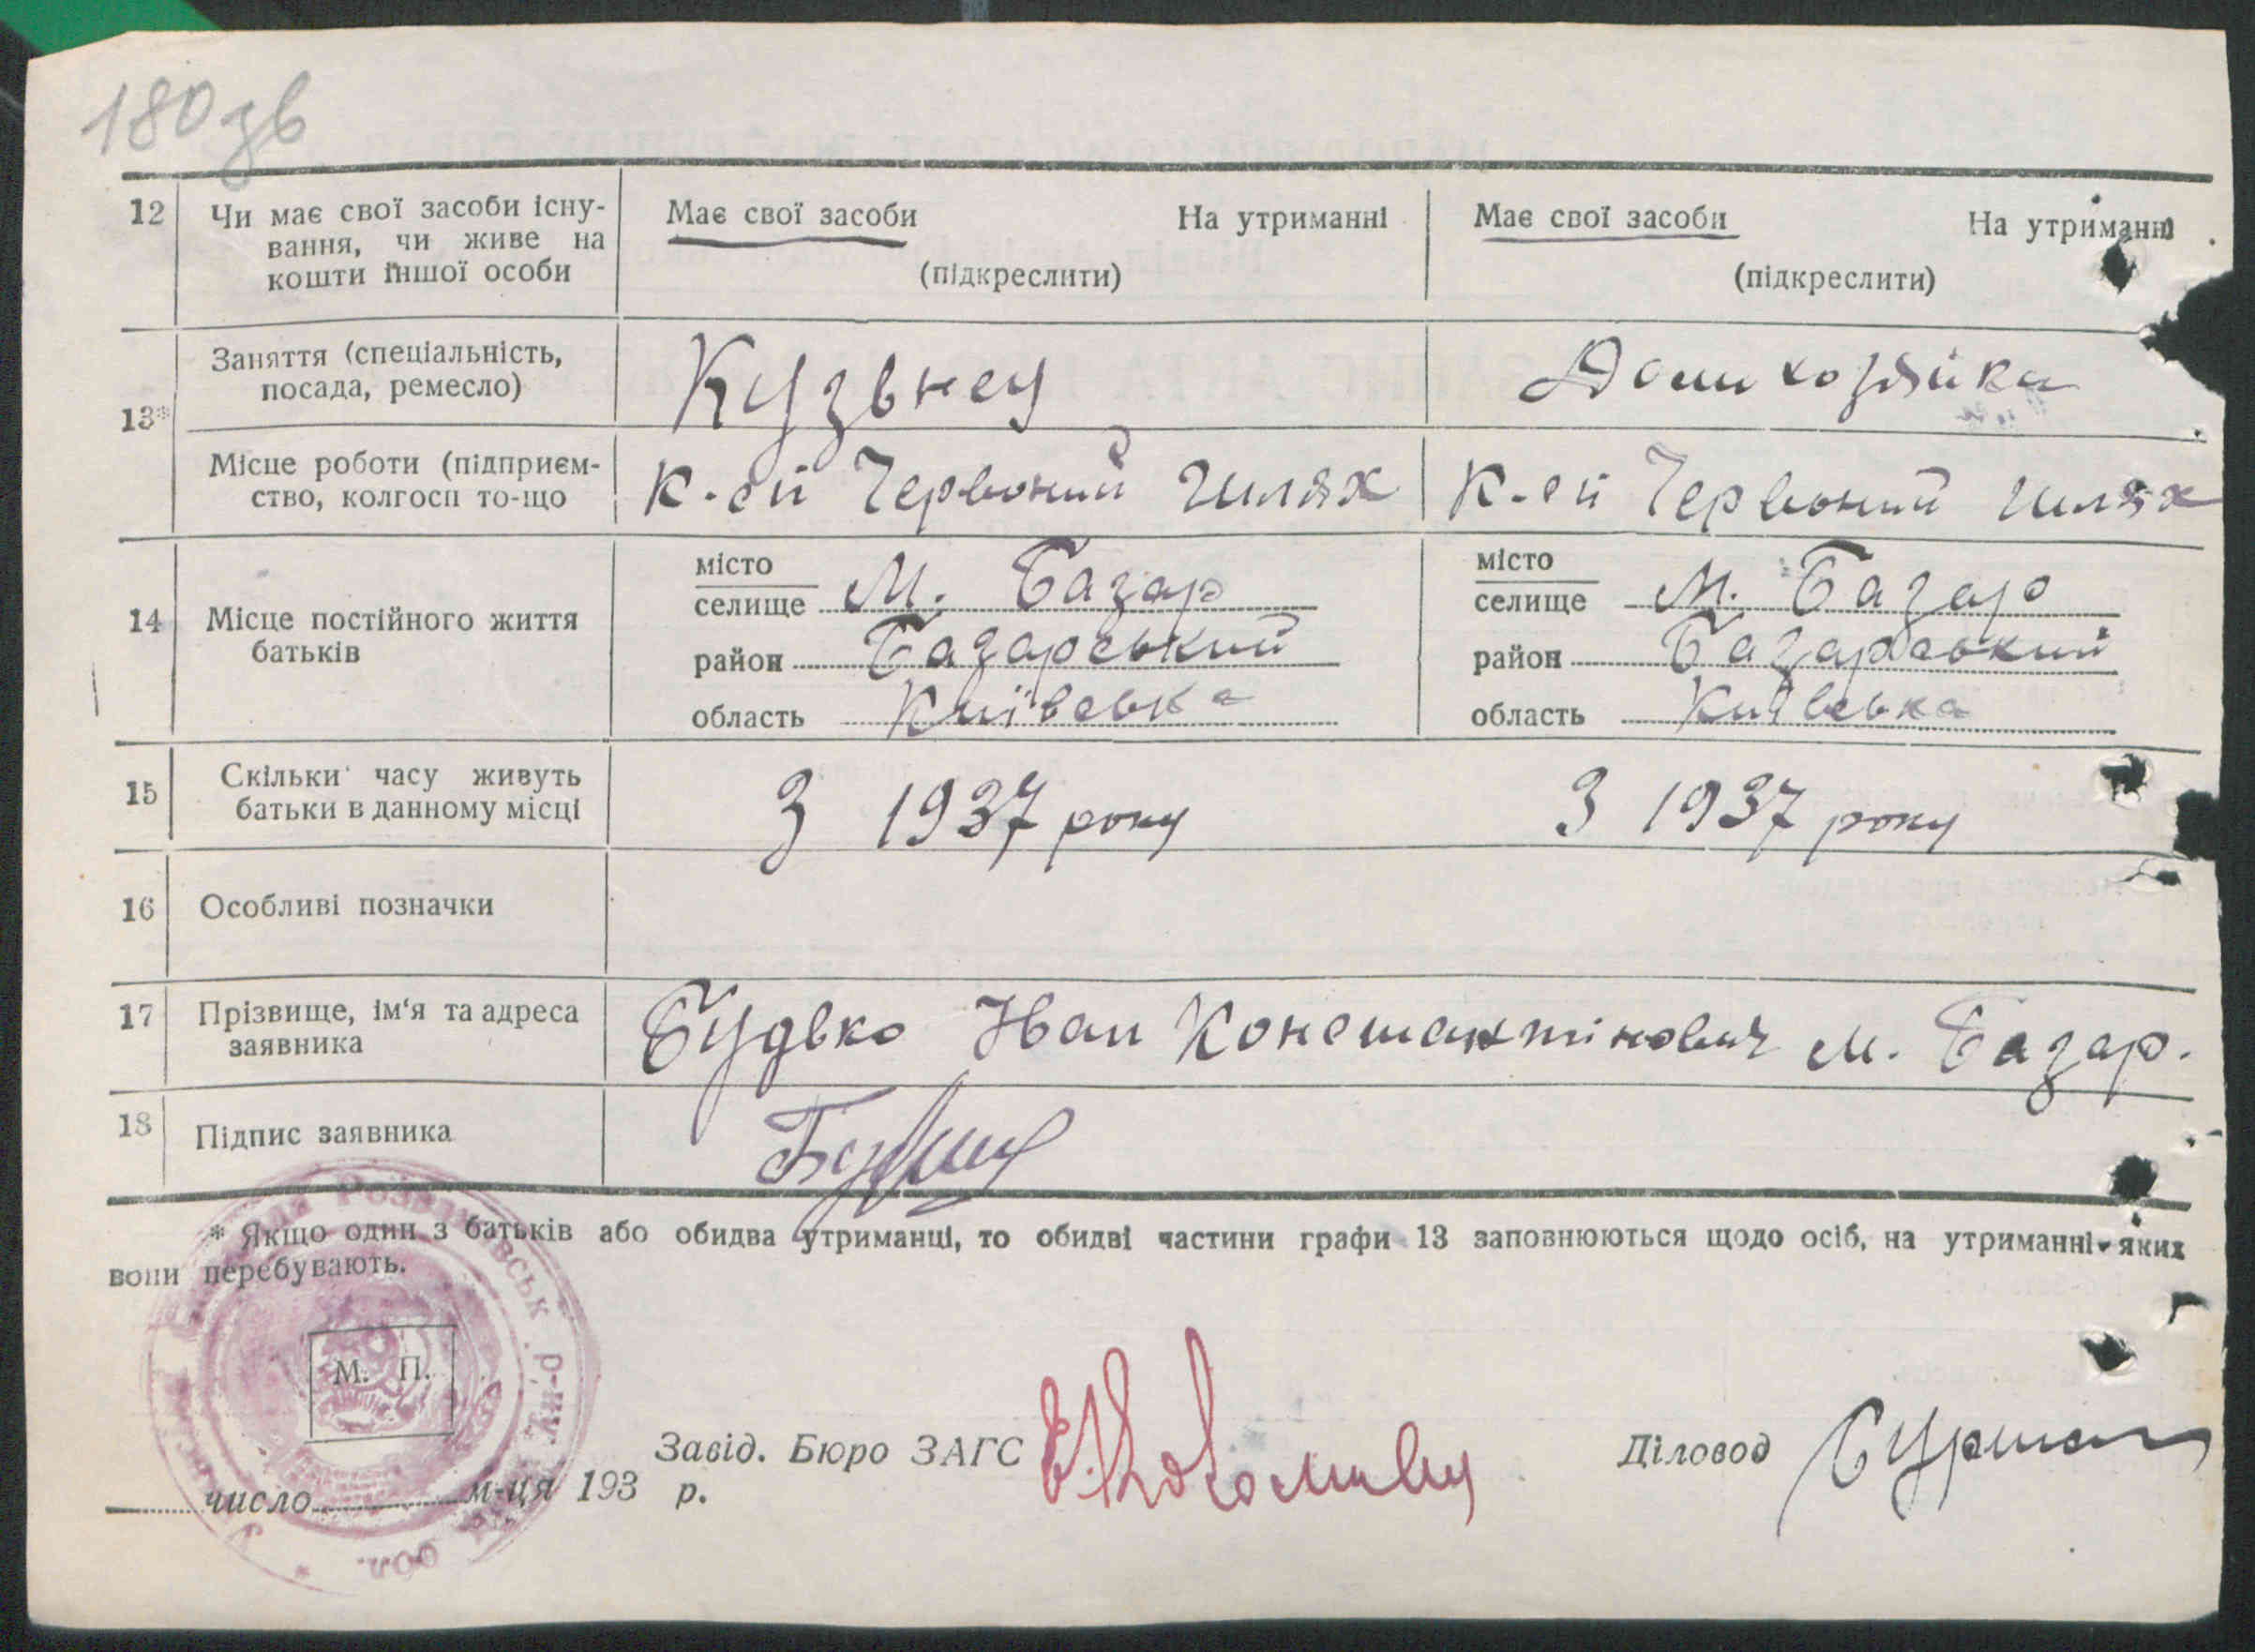 180 зв
12 Чи має свої засоби існу- Має свої засоби На утриманні Має свої засоби На утриманні
вання, чи живе на
кошти іншої особи (підкреслити) (підкреслити)
Заняття (спеціальність, Кузьнец Дом хозяйка
посада, ремесло)
13*
Місце роботи (підприєм- Червоний Шлях Червоний Шлях
ство, колгосп то-що
14 Місце постійного життя
батьків
місто
селище М. Базар
район Базарський
область Київська
місто
селище М. Базар
район Базарський
область Київська
15 Скільки часу живуть З 1937 року З 1937 року
батьки в данному місці
16 Особливі позначки
17 Прізвище, ім'я та адреса Будько Иван Констянтінович м. Базар.
заявника
18 Підпис заявника
* Якщо один з батьків або обидва утриманці, то обидві частини графи 13 заповнюються щодо осіб, на утриманні яких
вони перебувають.
М. П.
Завід. Бюро ЗАГС Діловод
число м-ця 193 р.
р-ну
обл.